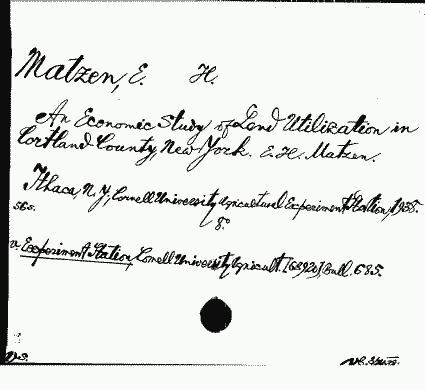 Matzen, E. H.
An Economic Study of Land Utilization in
Cortland County, New York. E. H. Matzen.
Ithaca, N. Y., Cornell University Agricultural Experiment Station, 1938.
8°
v. Experiment Station, Cornell University Agricult. Bull. 685.